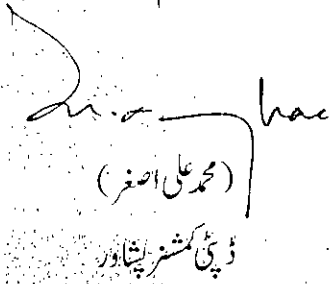 (محمد علی اصغر)
ڈپٹی کمشنر پشاور